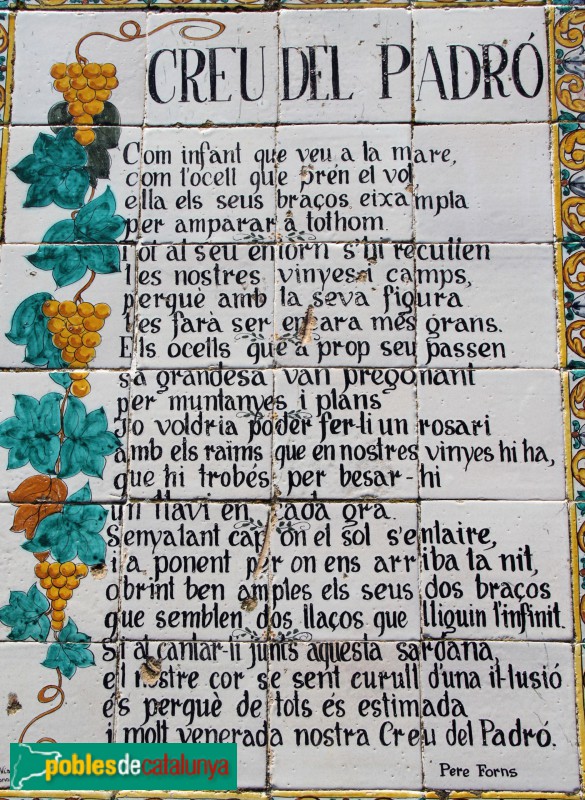 CREU DEL PADRÓ
Com infant que veu a la mare,
com l'ocell que prén el vol
ella els seus braços eixampla
per amparar a tothom.
Tot al seu entorn s'hi recullen
les nostres vinyes i camps,
perquè amb la seva figura
les farà ser encara més grans.
Els ocells que a prop seu passen
sa grandesa van pregonant
per muntanyes i plans
Jo voldria poder fer-li un rosari
amb els raïms que en nostres vinyes hi ha,
que hi trobés per besar-hi
un llavi en cada gra.
Senyalant cap on el sol s'enlaire,
i a ponent per on ens arriba la nit,
obrint ben amples els seus dos braços
que semblen dos llaços que lliguin l'infinit.
Si al cantar-li junts aquesta sardana
el nostre cor se sent curull d'una il·lusió
és perquè de tots és estimada
i molt venerada nostra Creu del Padró.
Pere Forns
poblesdecatalunya